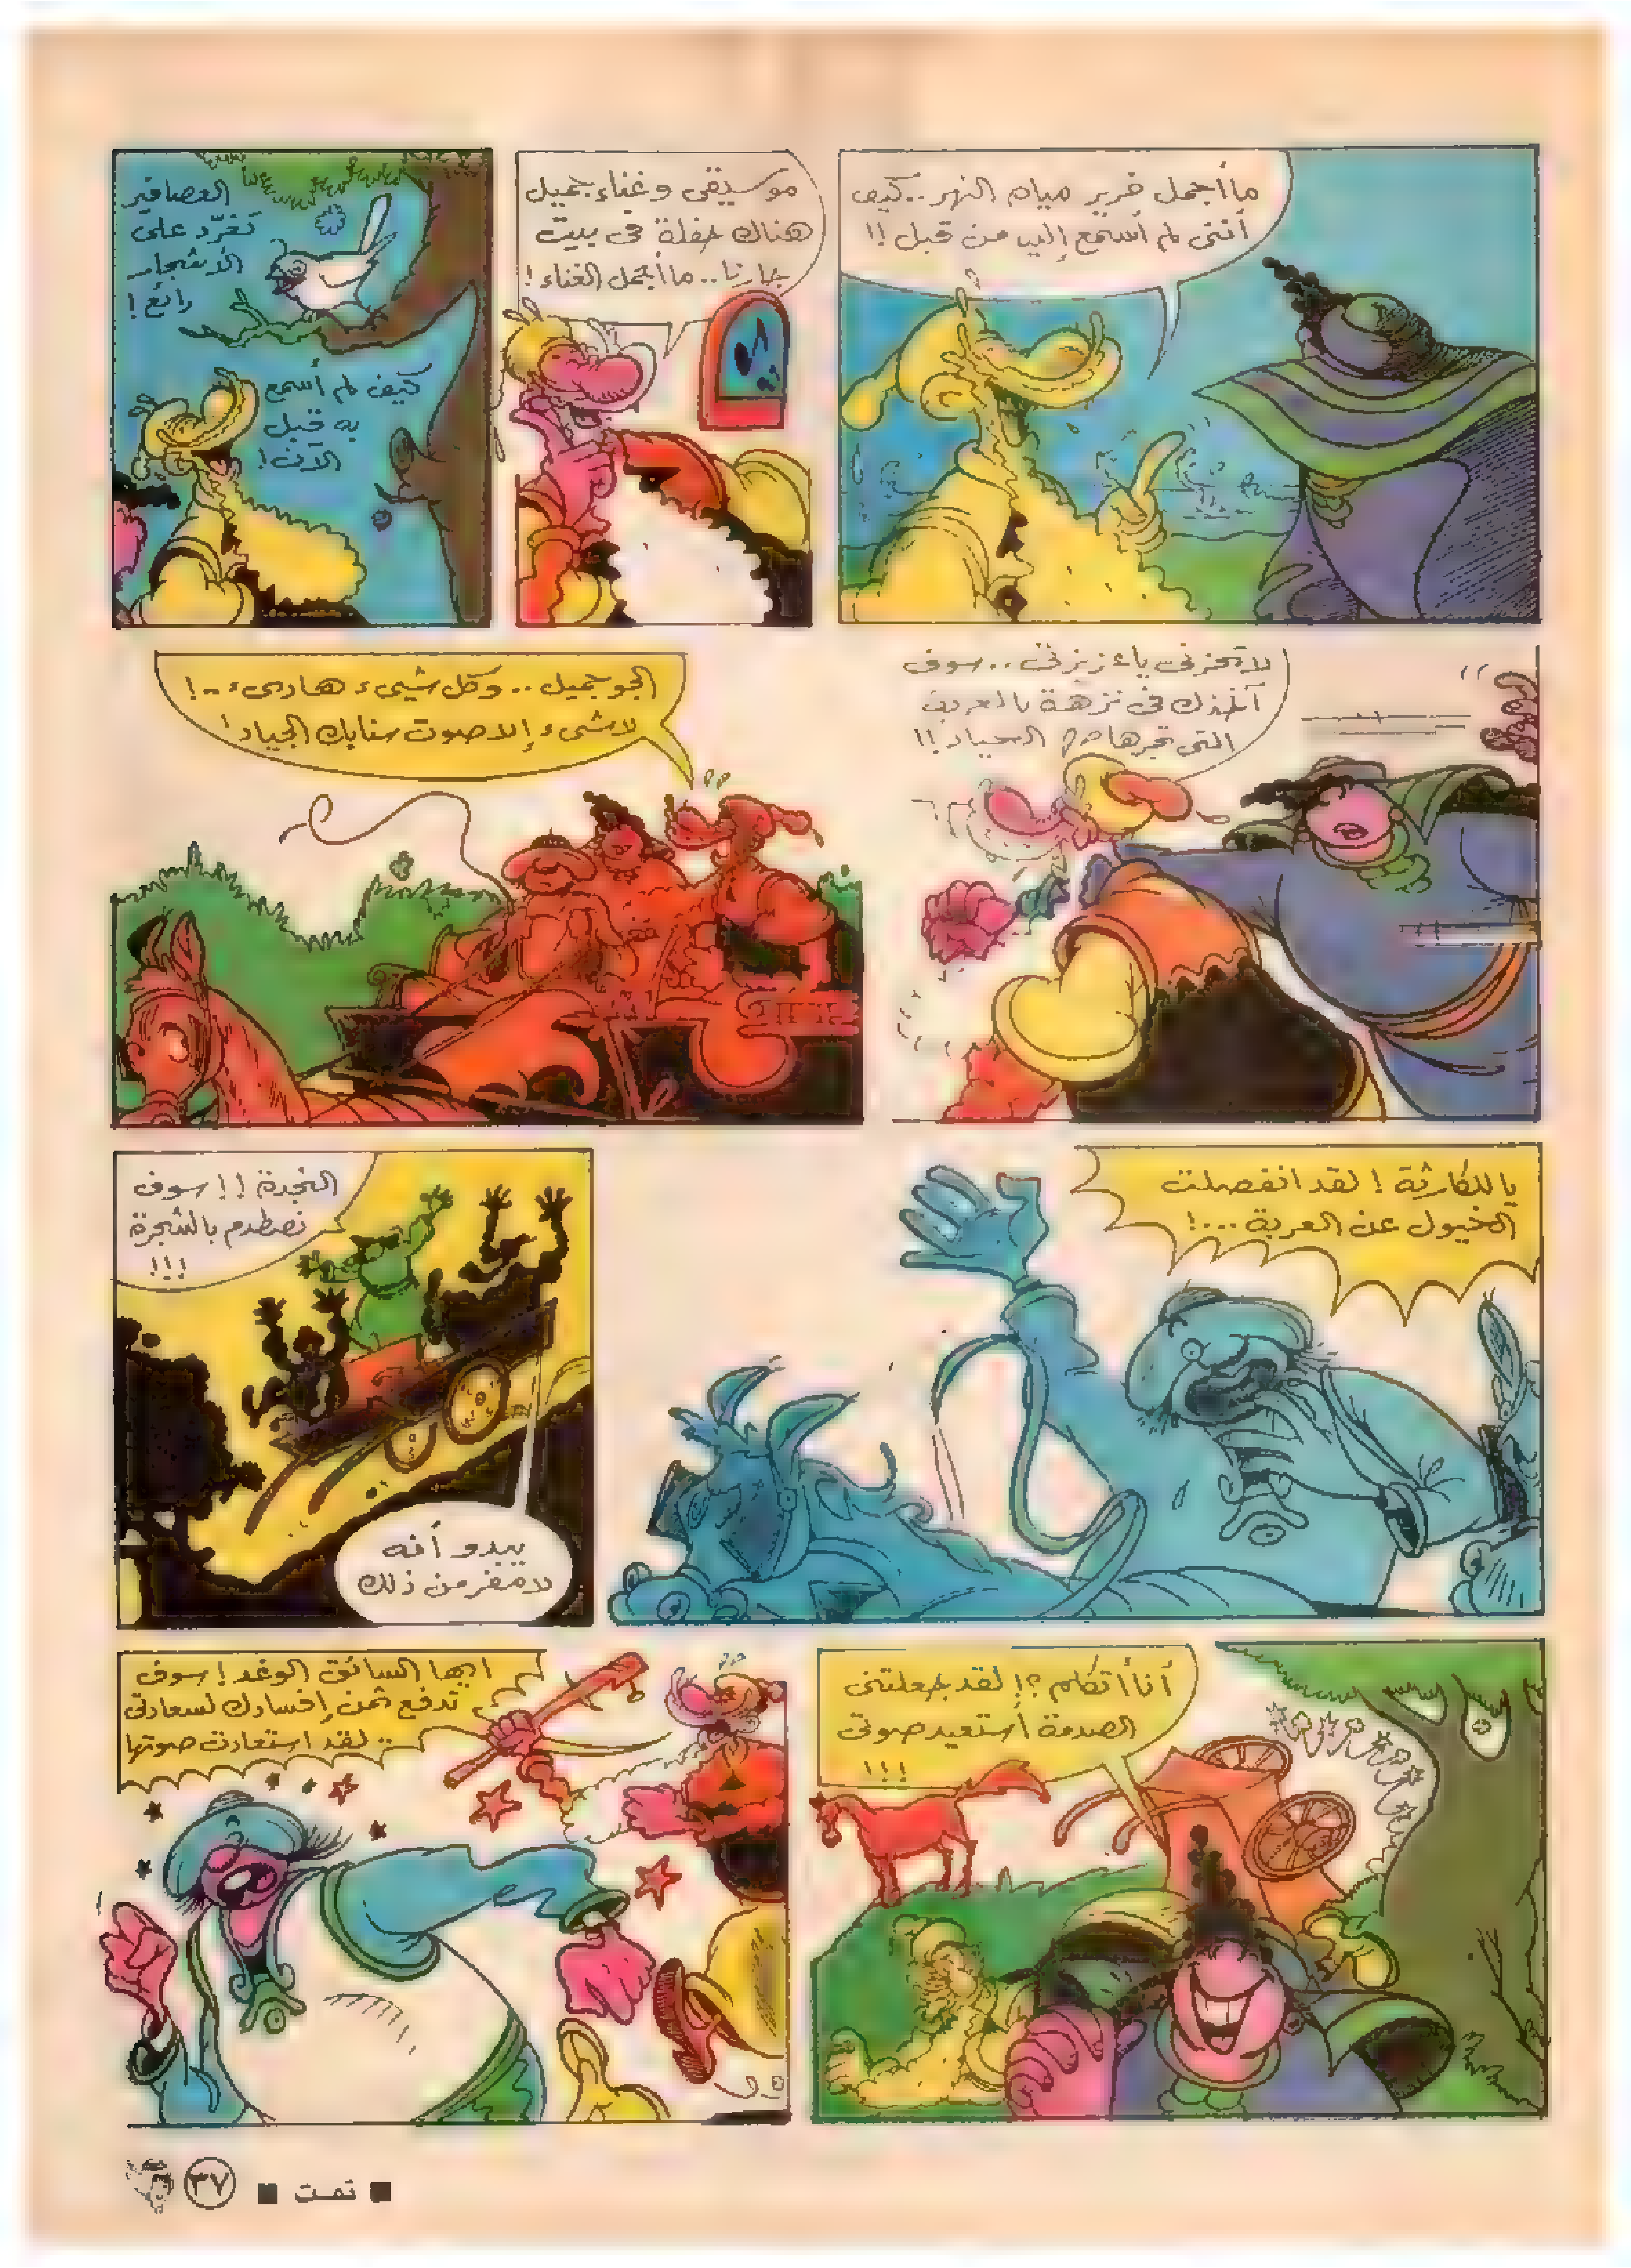 ما أجمل خرير مياه النهر .. كيف
أننى لم أسمع إليه من قبل !!
موسيقى وغناء جميل
هناك حفلة فى بيت
جارنا .. ما أجمل الغناء !
العصافير
تغرّد على
الأشجار
رائع !
كيف لم أسمع
به قبل
الآن !
لا تحزنى يا عزيزتى .. سوف
آخذك فى نزهة بالعربة
التى تجرها الجياد !!
الجو جميل .. وكل شيىء هادىء ..!
لا شىء إلا صوت سنابك الجياد !
يا للكارثة ! لقد انفصلت
الخيول عن العربة ...!
النجدة !! سوف
نصطدم بالشجرة
!!!
يبدو أنه
لا مفر من ذلك
أنا أتكلم ؟! لقد جعلتنى
الصدمة أستعيد صوتى
!!!
ايها السائق الوغد ! سوف
تدفع ثمن إفسادك لسعادتى
.. لقد استعادت صوتها
■ تمت ■
٣٧